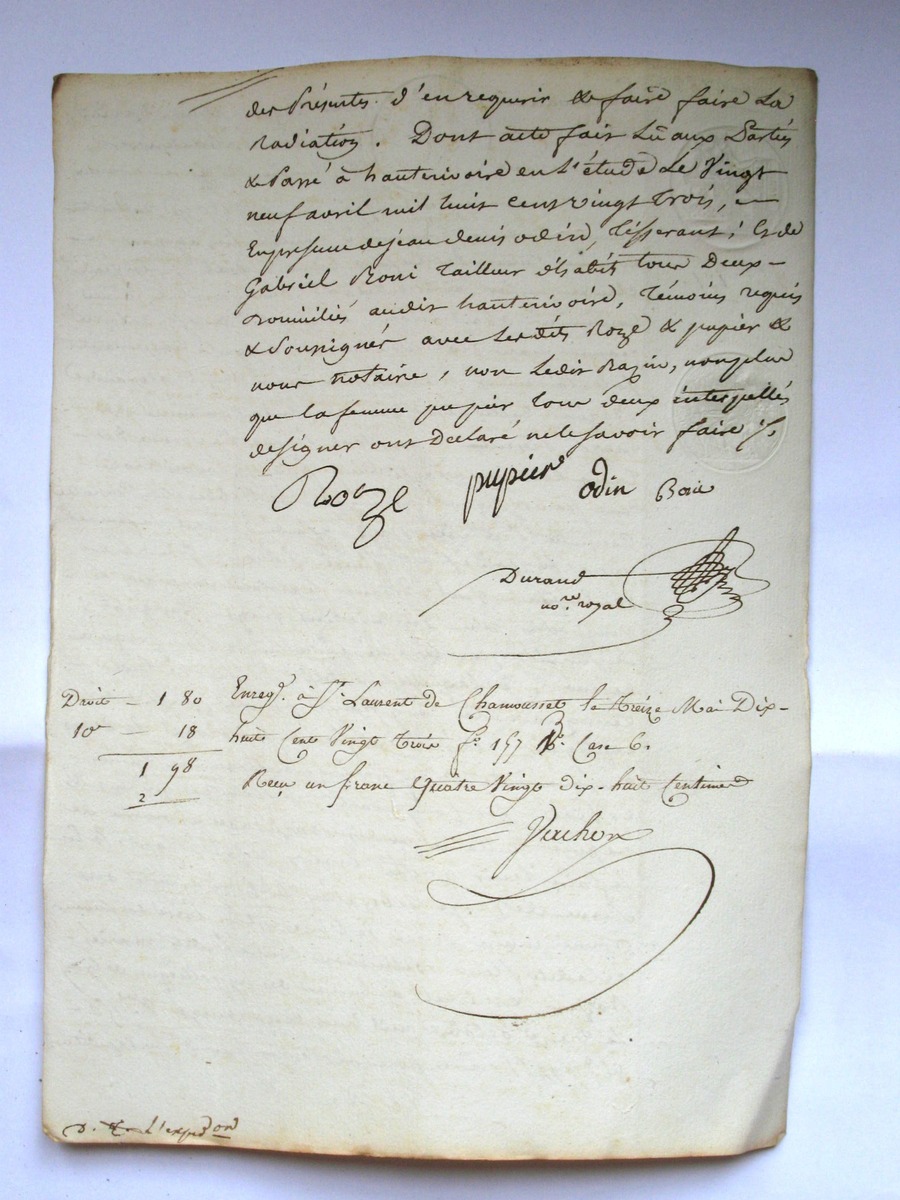 des Présentes d'en requerir & faire faire La
radiation. Dont acte fait Lu aux Parties
& Passé à hauterivoire en l'étude Le Vingt
neuf avril mil huit cent vingt trois, en
En presence de jean denis odin, Tisserant, & de
Gabriel Tailleur d'habits tous Deux
domiciliés audit hauterivoire, Témoins requis
& Soussignés avec Lesdits Roze & pupier &
nous notaire, non Ledit Razin, non plus
que la femme pupier tous deux interpellés
de signer ont Déclaré ne le savoir faire ./.
Roze pupier odin
Durand
no.re royal
Droit — 1 80
10e — 18
1 98
2
Enreg. à St. Laurent de Chamousset le Treize Mai Dix-
huit Cent Vingt trois fo. 157 Case 6.
Reçu un franc Quatre Vingt dix-huit Centimes